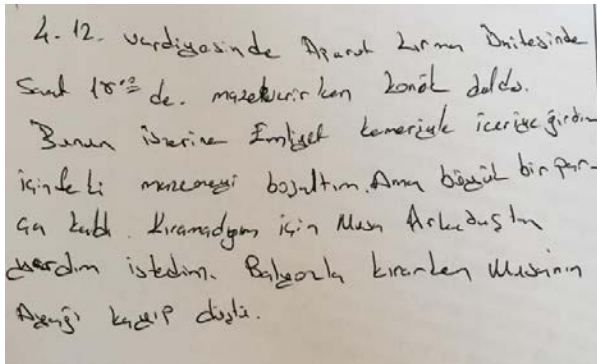 4-12. vardiyasinde Aparat kırma Ünitesinde
Saat 18:00 de. mazeke verirken konök doldu.
Bunun üzerine Emliyet kemeriyle içeriye girdim
içindeki mazemeyi boşaltım. Ama böyük bir par-
ça kaldı. Kıramadıyım için Musa Arkadaştan
yardım istedim. Balyozla kırarken Musanın
Ayağı kayıp düştü.